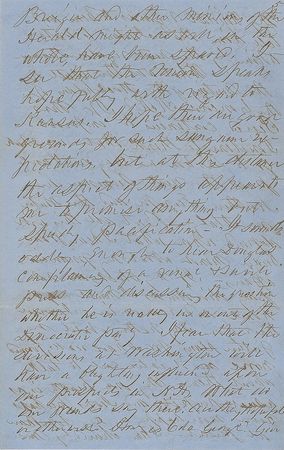 Bridges and other minions of the
Herald might as well, on the
whole, have been spared. I
see that the Union speaks
hopefully with regard to
Kansas. I hope there are good
grounds for such sanguine ex
pectations, but at this distance
the aspect of things appears to
me to promise anything but
speedy pacification. It sounds
odd enough to hear Douglas
complaining of a
press and discussing the question
whether he is not a member of the
Democratic party. I fear that the
divisions at Washington will
have a blighting influence upon
our prospects in N.H. What do
our friends say there, are they hopeful
or otherwise? Does Gov